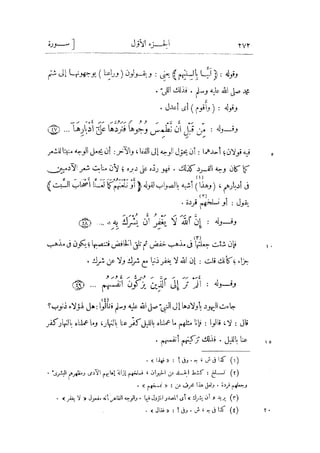 ٢٧٢ الجـــزء الأول [ ســـورة
وقوله : ﴿ لَيًّا بِأَلْسِنَتِهِمْ ﴾ يعنى : ويقولون ( وراعنا ) يوجهونها إلى شتم
محمد صلى الله عليه وسلم . فذلك اللىّ .
وقوله : ( وأقوم ) أى أعدل .
وقـــوله : مِّن قَبْلِ أَن نَّطْمِسَ وُجُوهًا فَنَرُدَّهَا عَلَىٰٓ أَدْبَارِهَا ... ﴿٤٧﴾
٥ فيه قولان ؛ أحدهما : أن يحوّل الوجه إلى القفا ، والآخر : أن يجعل الوجه منبتا للشعر
كما كان وجه القرد كذلك . فهو ردّه على دبره ؛ لأن منابت شعر الآدميين
فى أدبارهم ، ( وهذا ) أشبه بالصواب لقوله ﴿ أَوْ نَلْعَنَهُمْ كَمَا لَعَنَّا أَصْحَابَ السَّبْتِ ﴾
يقول : أو نسلخهم قردة .
وقـــوله : إِنَّ ٱللَّهَ لَا يَغْفِرُ أَن يُشْرَكَ بِهِۦ ... ﴿٤٨﴾
١٠ فإن شئت جعلتها فى مذهب خفض ثم تلقى الخافض فتنصبها ؛ يكون فى مذهب
جزاء ؛ كأنك قلت : إن الله لا يغفر ذنبا مع شرك ولا عن شرك .
وقـــوله : أَلَمْ تَرَ إِلَى ٱلَّذِينَ يُزَكُّونَ أَنفُسَهُم ... ﴿٤٩﴾
جاءت اليهود بأولادها إلى النبىّ صلى الله عليه وسلم فقالوا : هل لهؤلاء ذنوب ؟
قال : لا ، قالوا : فإنا مثلهم ما عملناه بالليل كفّر عنا بالنهار ، وما عملناه بالنهار كفر
١٥ عنا بالليل . فذلك تزكيتهم أنفسهم .
(١) كذا فى ش ، ج . وفى أ : « فهذا » .
(٢) نسلخ : كشط الجلد عن الحيوان ؛ فسلخهم إزالة إهابهم الآدمى ومظهرهم البشرى .
وجعلهم قردة . ولعل هذا محرف عن : « نمسخهم » .
(٣) يريد « أن يشرك » أى المصدر المؤول فيها . والوجه الظاهر أنه مفعول « لا يغفر » .
٢٠ (٤) كذا فى ج ، ش . وفى أ : « فقال » .